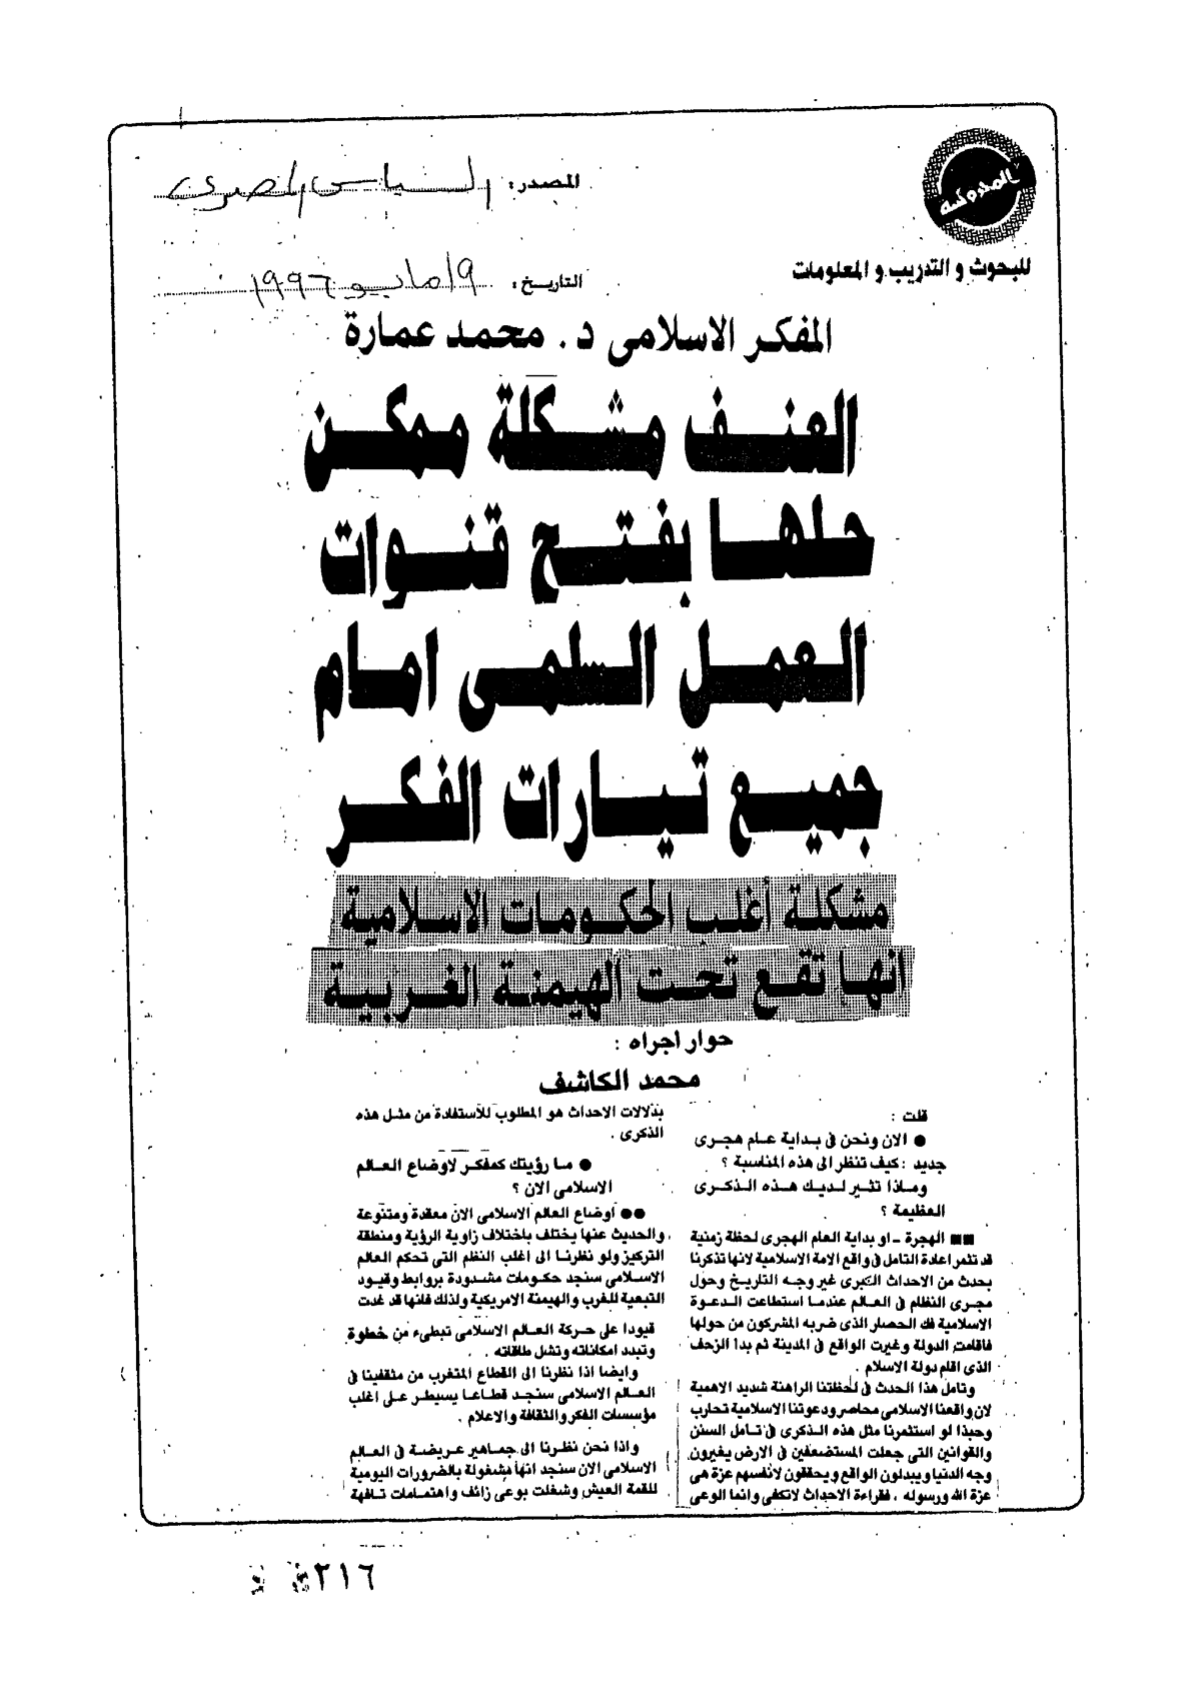 المحروسة
للبحوث و التدريب و المعلومات
المصدر: السياسى المصرى
التاريخ: ١٩ مايو ١٩٩٦
المفكر الاسلامى د. محمد عمارة
العنف مشكلة ممكن
حلها بفتح قنوات
العمل السلمى امام
جميع تيارات الفكر
مشكلة أغلب الحكومات الاسلامية
انها تقع تحت الهيمنة الغربية
حوار اجراه :
محمد الكاشف
قلت :
● الان ونحن فى بداية عام هجرى
جديد : كيف تنظر الى هذه المناسبة ؟
وماذا تثير لديك هذه الذكرى
العظيمة ؟
■■ الهجرة - او بداية العام الهجرى لحظة زمنية
قد تثمر اعادة التامل فى واقع الامة الاسلامية لانها تذكرنا
بحدث من الاحداث الكبرى غير وجه التاريخ وحول
مجرى النظام فى العالم عندما استطاعت الدعوة
الاسلامية فك الحصار الذى ضربه المشركون من حولها
فاقامت الدولة وغيرت الواقع فى المدينة ثم بدأ الزحف
الذى اقام دولة الاسلام .
وتامل هذا الحدث فى لحظتنا الراهنة شديد الاهمية
لان واقعنا الاسلامى محاصر ودعوتنا الاسلامية تحارب
وحبذا لو استثمرنا مثل هذه الذكرى فى تامل السنن
والقوانين التى جعلت المستضعفين فى الارض يغيرون
وجه الدنيا ويبدلون الواقع ويحققون لانفسهم عزة هى
عزة الله ورسوله ، فقراءة الاحداث لاتكفى وانما الوعى
بدلالات الاحداث هو المطلوب للأستفادة من مثل هذه
الذكرى .
● ما رؤيتك كمفكر لاوضاع العالم
الاسلامى الان ؟
●● أوضاع العالم الاسلامى الان معقدة ومتنوعة
والحديث عنها يختلف باختلاف زاوية الرؤية ومنطقة
التركيز ولو نظرنا الى اغلب النظم التى تحكم العالم
الاسلامى سنجد حكومات مشدودة بروابط وقيود
التبعية للغرب والهيمنة الامريكية ولذلك فانها قد غدت
قيودا على حركة العالم الاسلامى تبطىء من خطوة
وتبدد امكاناته وتشل طاقاته .
وايضا اذا نظرنا الى القطاع المتغرب من مثقفينا فى
العالم الاسلامى سنجد قطاعا يسيطر على اغلب
مؤسسات الفكر والثقافة والاعلام .
واذا نحن نظرنا الى جماهير عريضة فى العالم
الاسلامى الان سنجد انها مشغولة بالضرورات اليومية
للقمة العيش وشغلت بوعى زائف واهتمامات تافهة
٢١٦